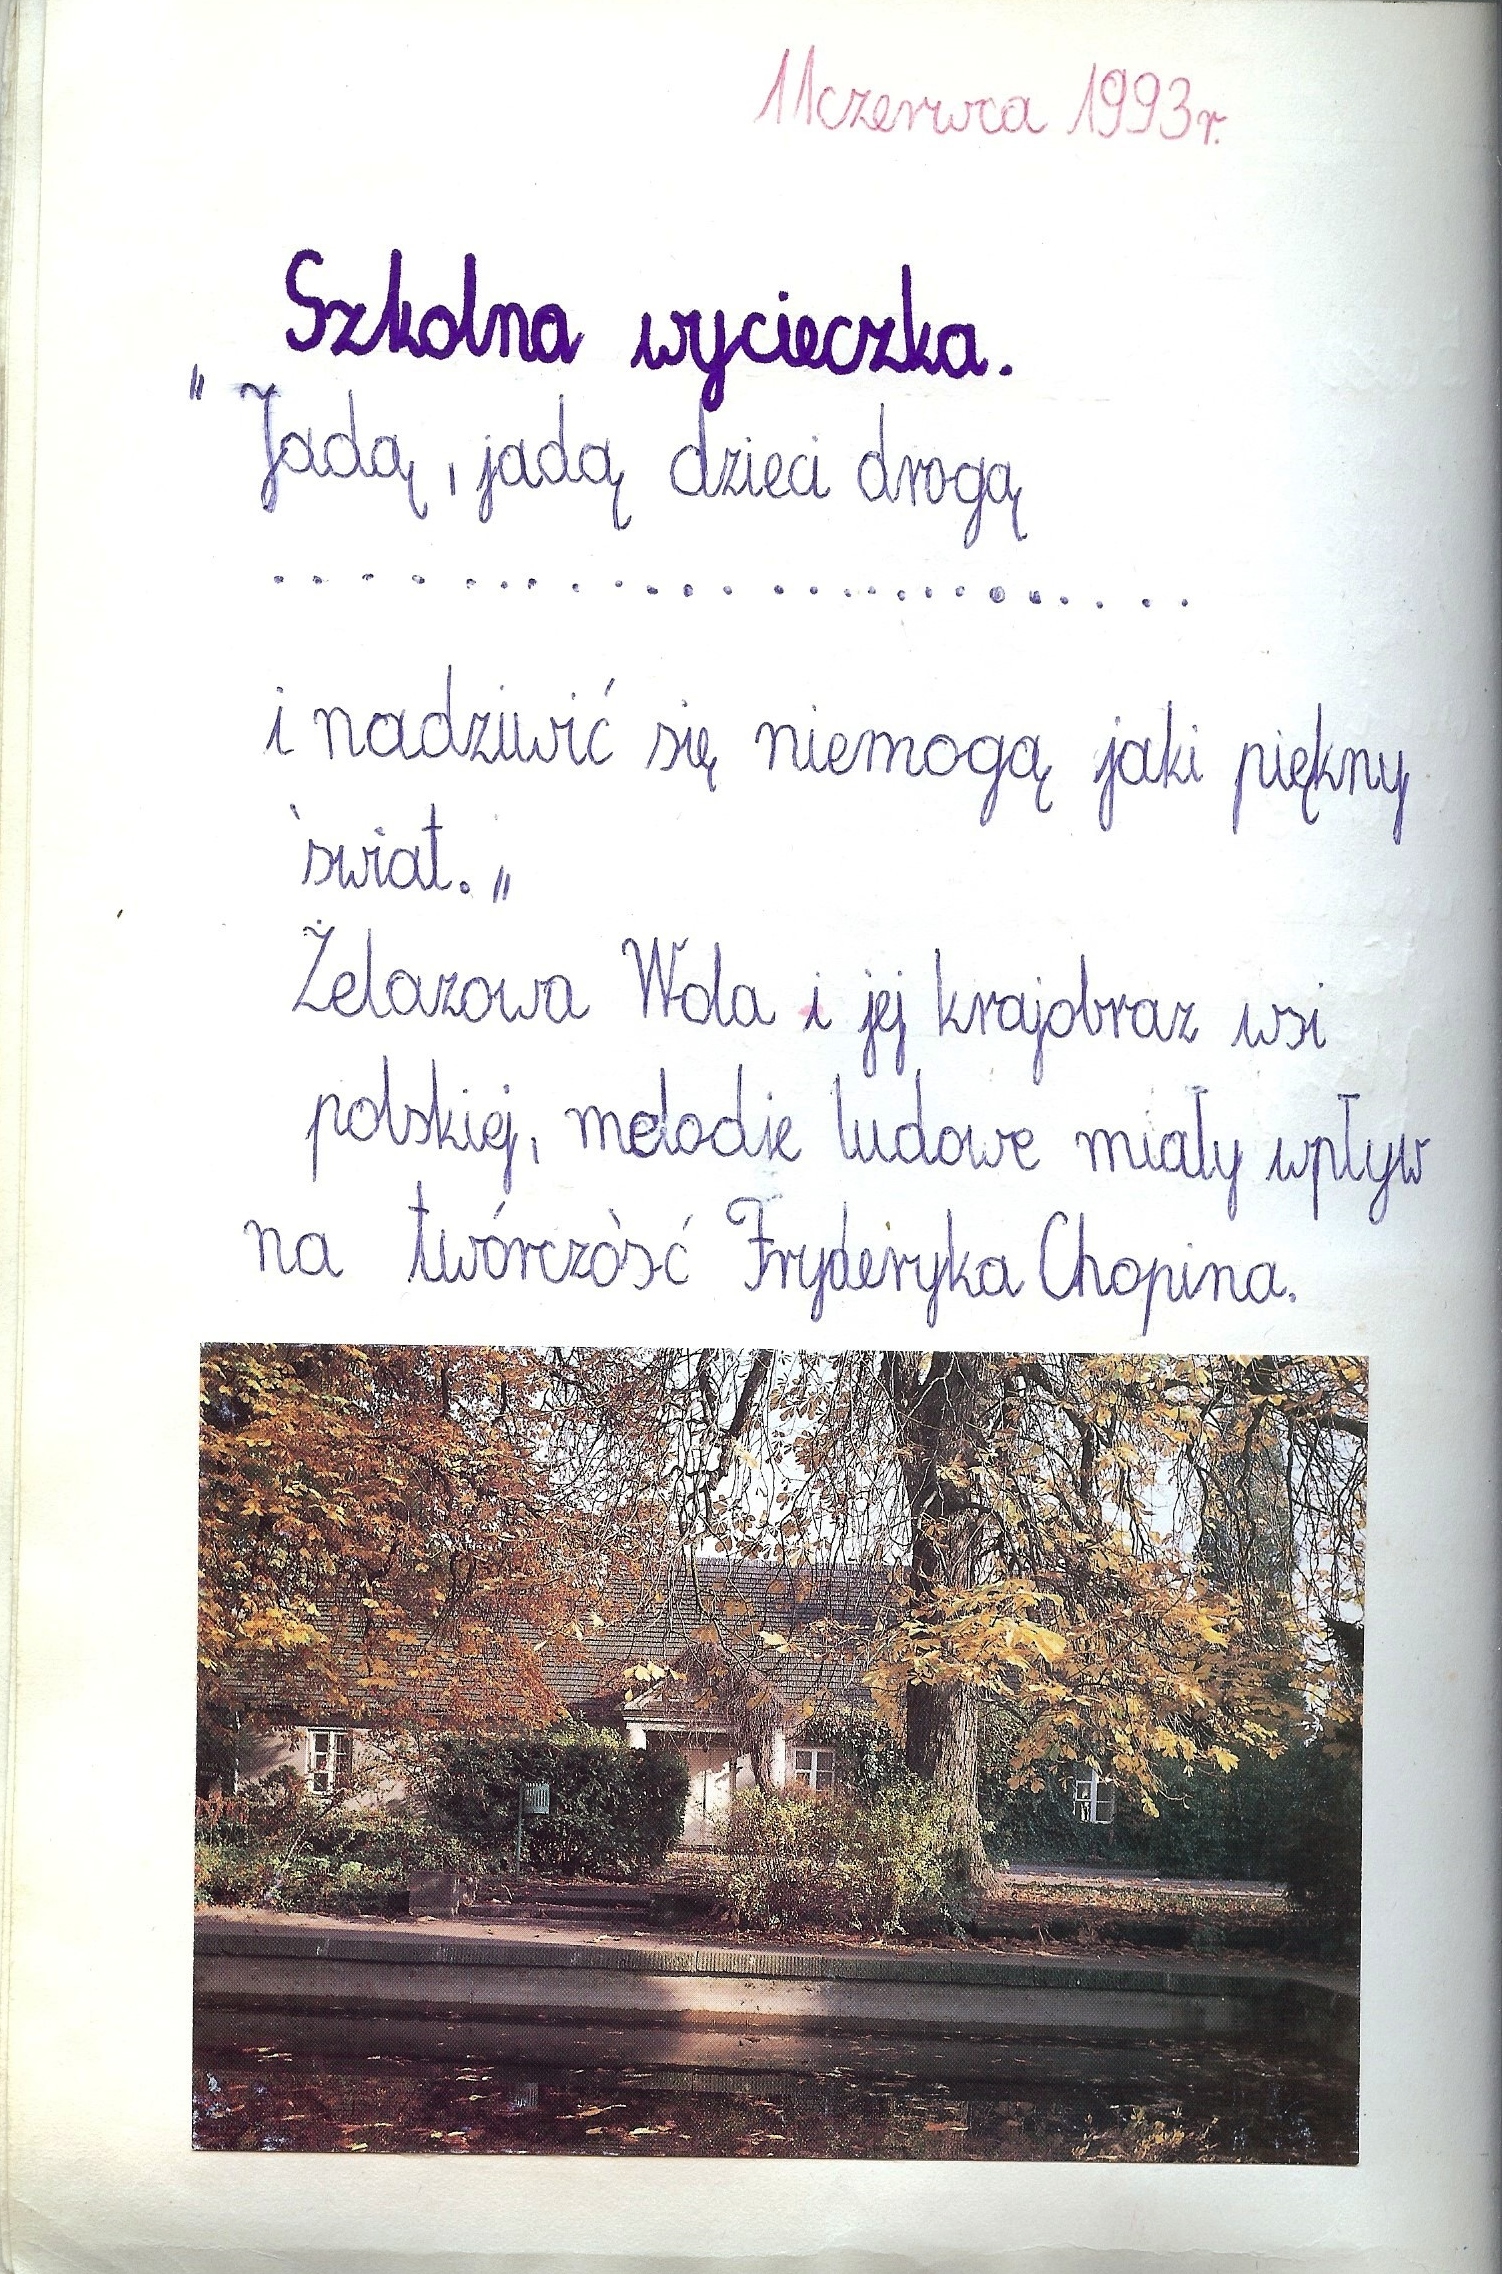 11 czerwca 1993 r.
Szkolna wycieczka.
" Jadą, jadą dzieci drogą
..............................
i nadziwić się niemogą jaki piękny
świat. "
Żelazowa Wola i jej krajobraz wsi
polskiej, melodie ludowe miały wpływ
na twórczość Fryderyka Chopina.